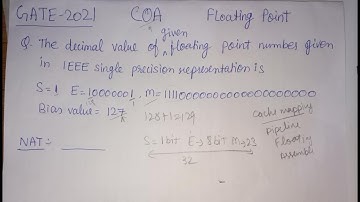 GATE-2021 COA Floating Point
given
Q. The decimal value of ^ floating point number given
in IEEE single precision representation is
S=1 E=10000001, M=11110000000000000000000
Bias value = 127
128+1=129
cache mapping
Pipeline
Floating
Assemble
NAT:- ______
S=1bit E→8bit M→23
32